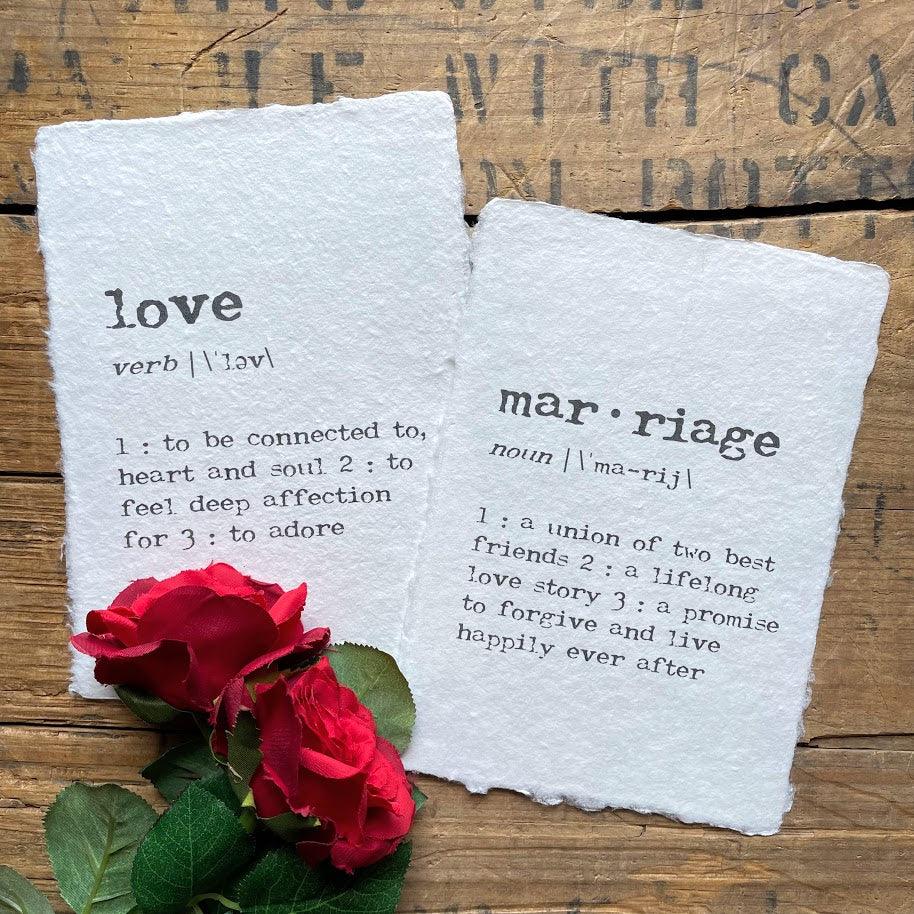 WITH CA
love
verb | \ˈləv\
1 : to be connected to,
heart and soul 2 : to
feel deep affection
for 3 : to adore
mar·riage
noun | \ˈma-rij\
1 : a union of two best
friends 2 : a lifelong
love story 3 : a promise
to forgive and live
happily ever after